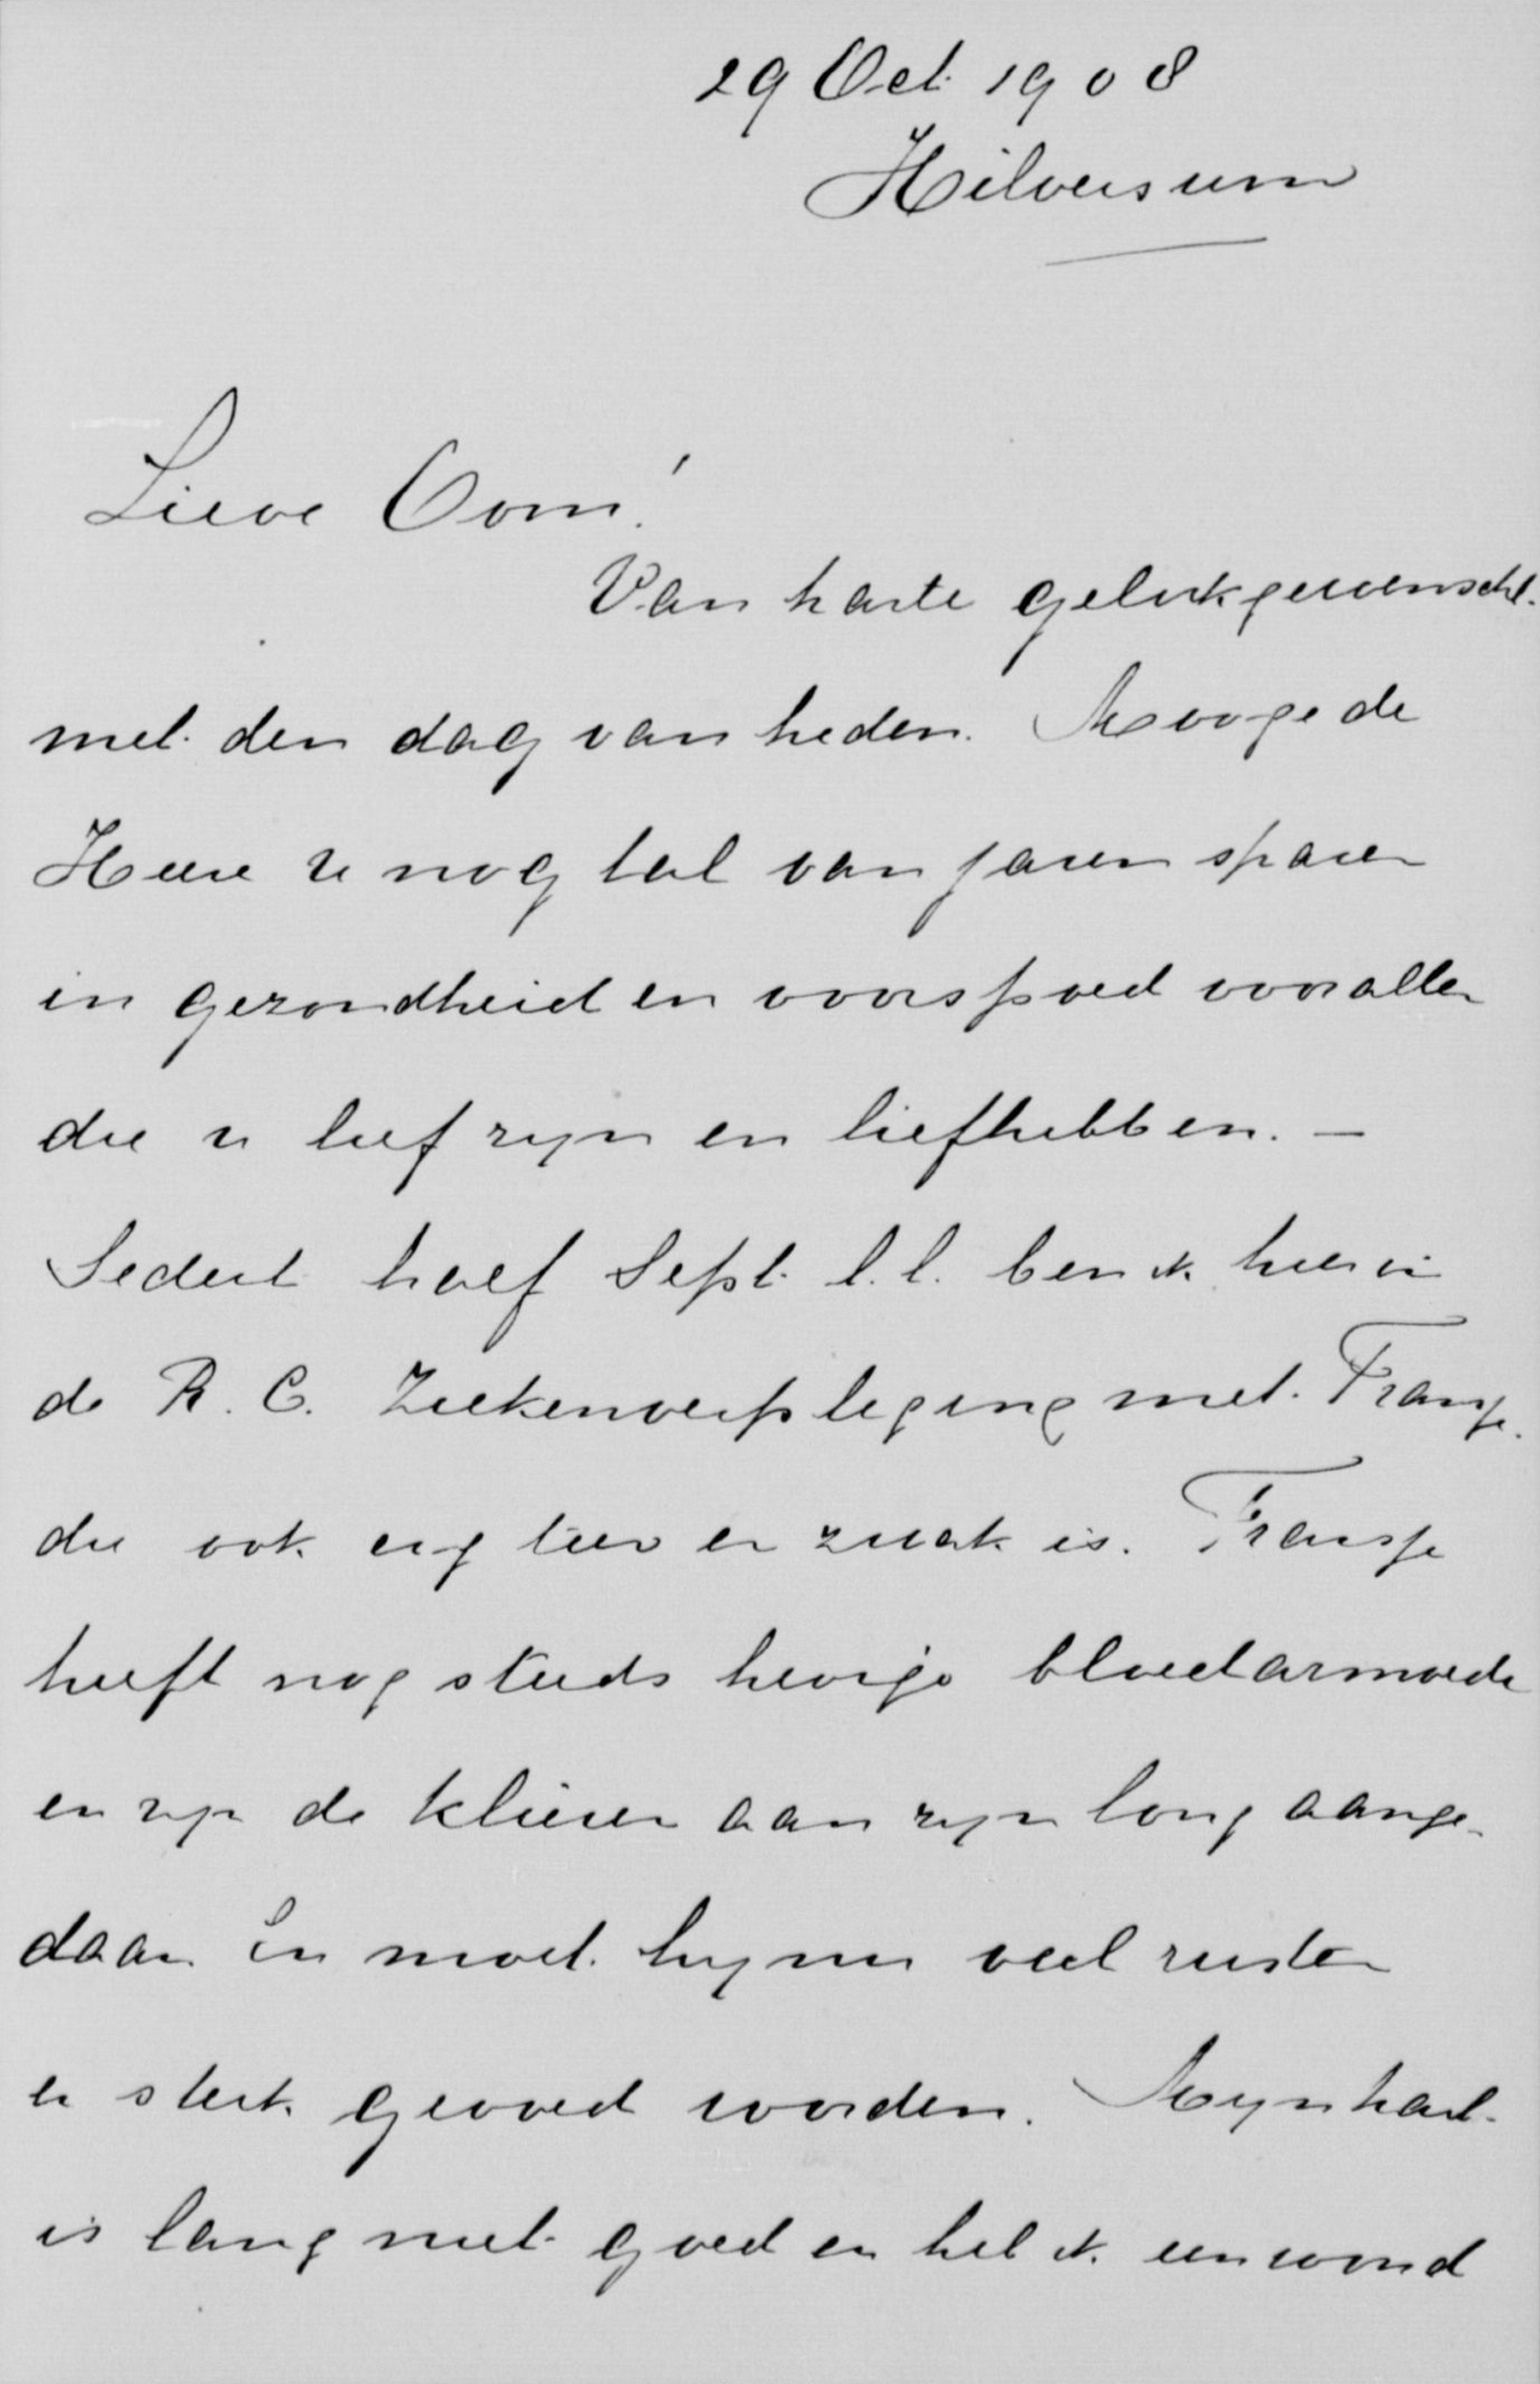 29 Oct. 1908
Hilversum
Lieve Oom!
Van harte gelukgewenscht
met den dag van heden. Mooge de
Heere U nog tal van jaren sparen
in gezondheid en voorspoed voor allen
die u lief zijn en liefhebben. —
Sedert half Sept. l.l. ben ik hier in
de R. C. Ziekenverpleging met Fransje.
die ook erg teer en zwak is. Fransje
heeft nog steeds hevige bloedarmoede
en zijn de klieren aan zijn long aange-
daan en moet hij nu veel rusten
en sterk gevoed worden. Mijn hart
is lang niet goed en heb ik een wond